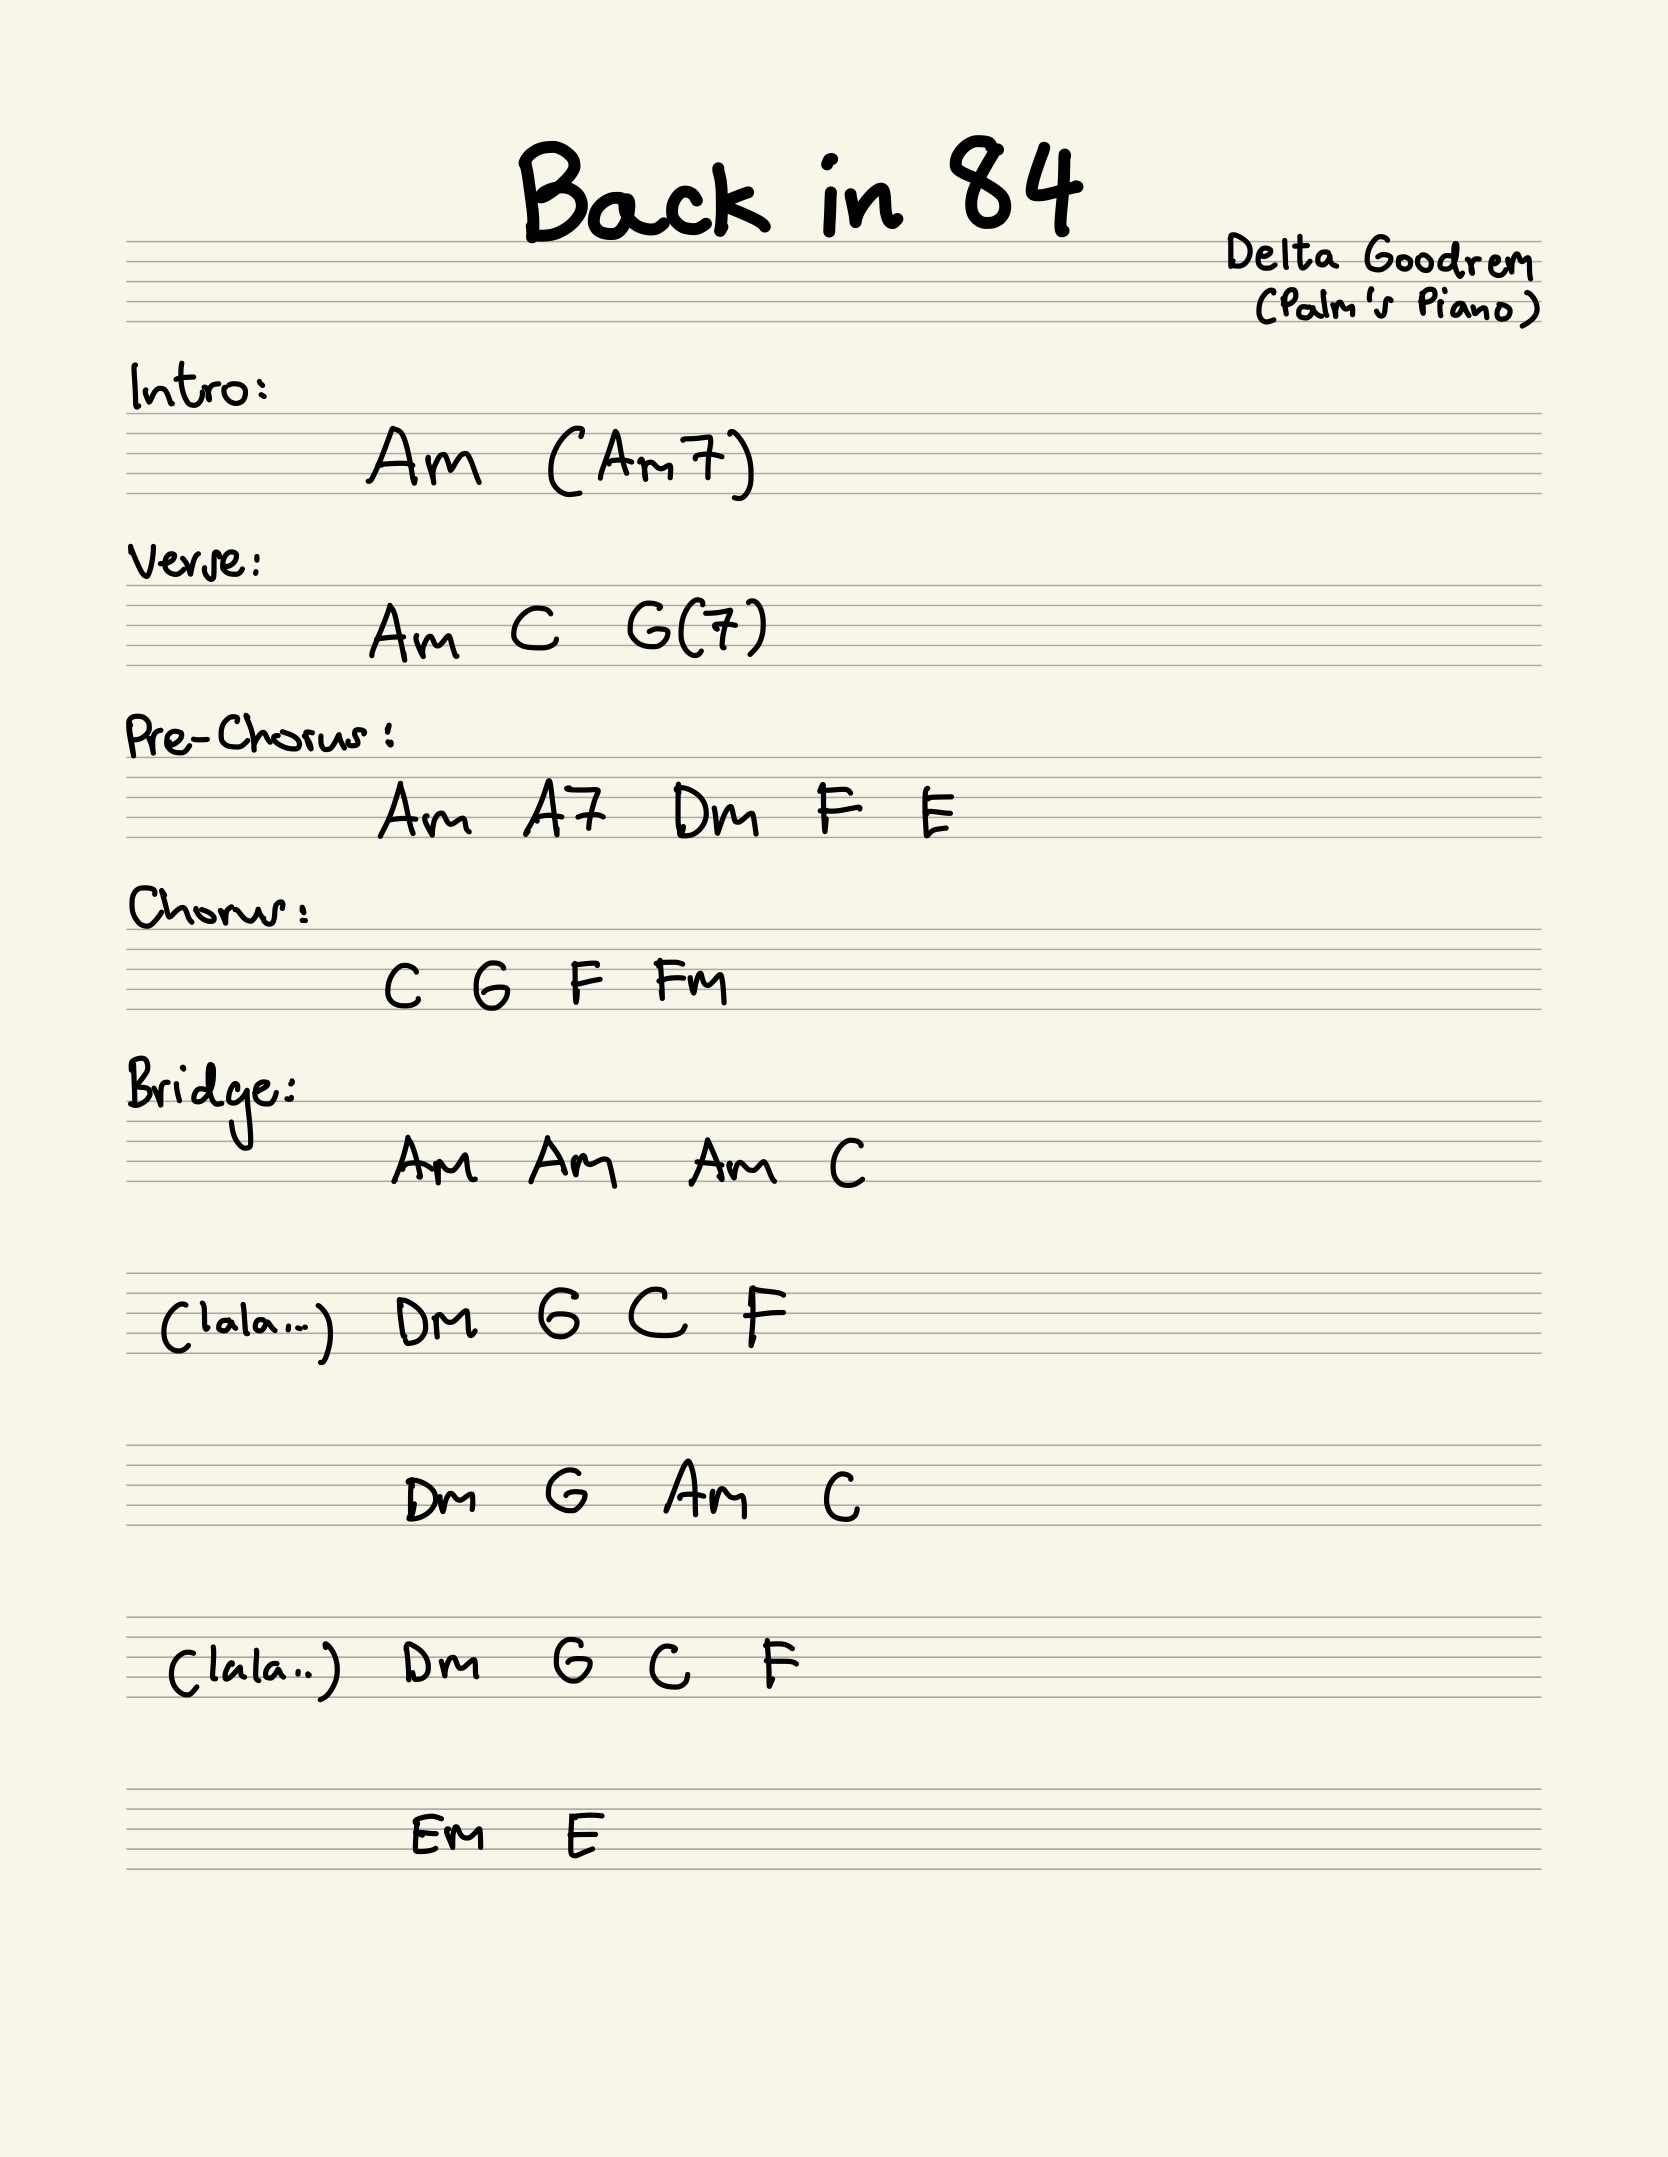 Back in 84
Delta Goodrem
(Palm's Piano)
Intro:
Am (Am7)
Verse:
Am C G(7)
Pre-Chorus:
Am A7 Dm F E
Chorus:
C G F Fm
Bridge:
Am Am Am C
(lala...) Dm G C F
Dm G Am C
(lala..) Dm G C F
Em E